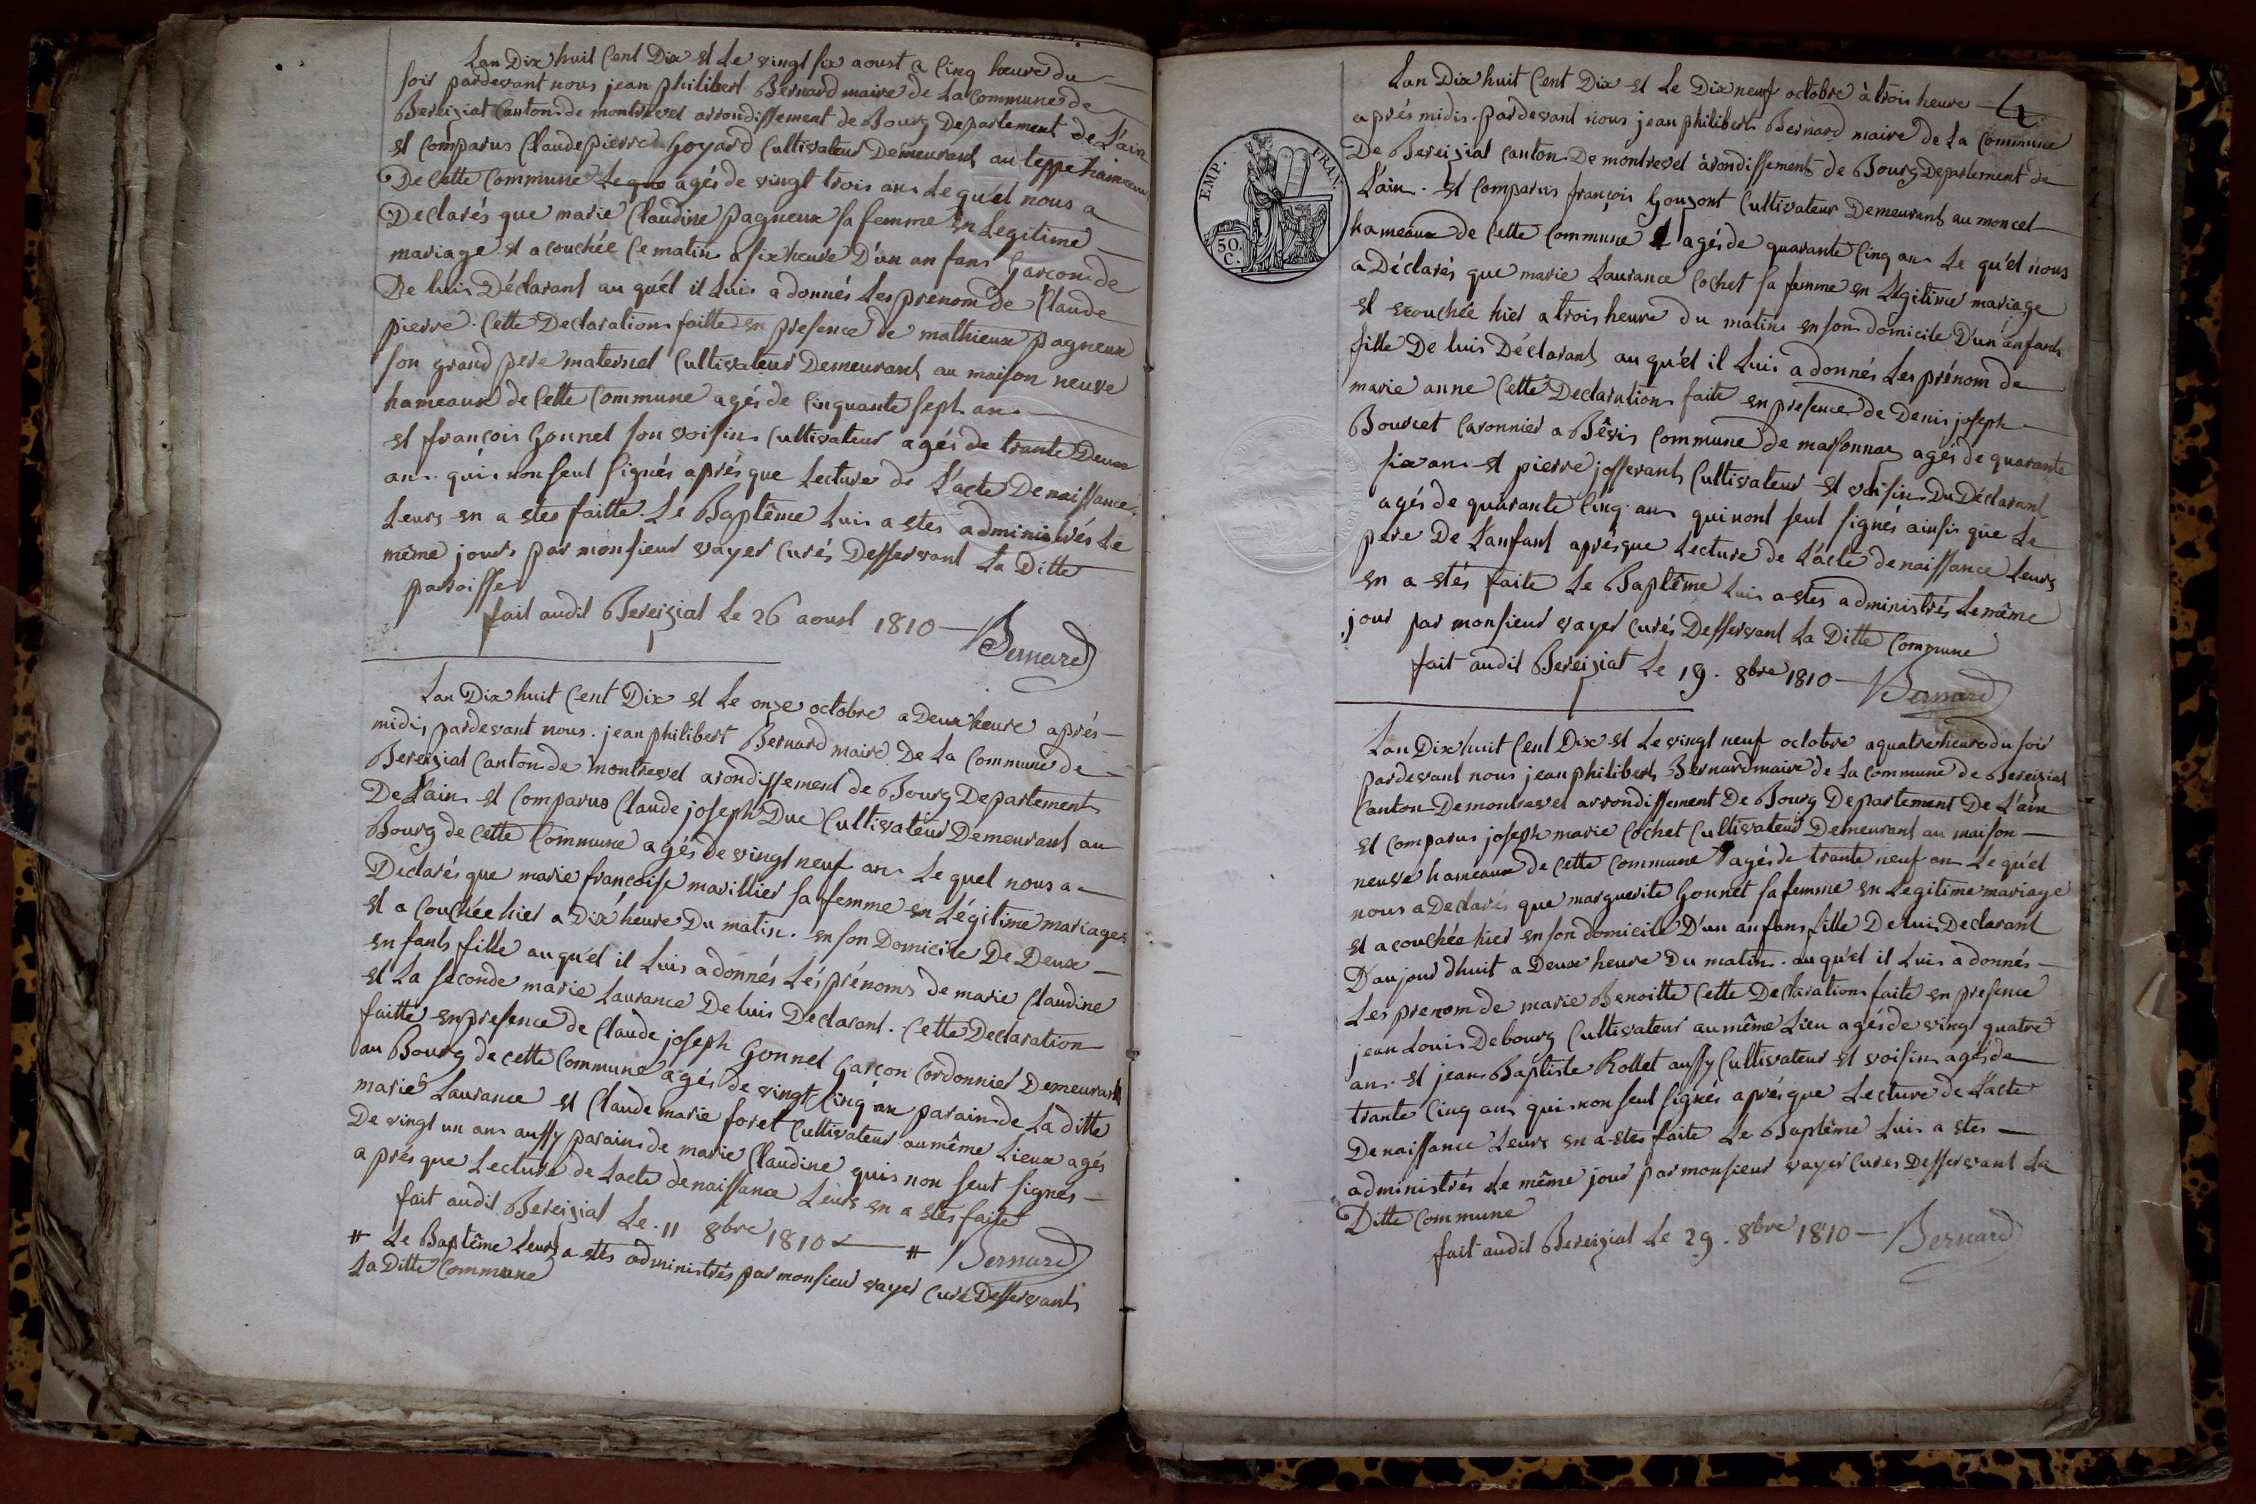 Lan Dix huit Cent Dix et Le vingt six aoust a Cinq heure du
soir pardevant nous jean philibert Bernard maire de La Commune de
Bereiziat Canton de montrevel arrondissement de Bourg Departement de L'ain
et Comparus Claude pierre Goyard Cultivateur Demeurant au teppe hameau
De Cette Commune Le que agés de vingt trois an Le quel nous a
Declarés que marie Claudine pagneux sa femme en Legitime
mariage et acouchée Ce matin a six heure D'un anfans Garcon de
De luis Déclarant au quél il Luis a donnés Les prenom de Claude
pierre. Cette Declaration faitte en presence de mathieux pagneux
son grand pere maternel Cultivateur Demeurant au maison neuve
hameaux de Cette Commune agés de Cinquante sept an
et françois Gonnet son voisin Cultivateur agés de trante Deux
an. quis non seut signés aprés que Lecture de L'acte De naissance
Leurs en a etes faitte. Le Baptême Luis a etes administrés Le
même jours par monsieur vayer Curés Dessersant La Ditte
paroisse
fait audit Bereiziat Le 26 aoust 1810 — Bernard
Lan Dix huit Cent Dix et Le onze octobre a Deux heure aprés
midis pardevant nous. jean philibert Bernard maire De La Commune de
Bereiziat Canton de montrevel arondissement de Bourg Departement
De Lain et Comparus Claude joseph Duc Cultivateur Demeurant au
Bourg de Cette Commune agés de vingt neuf an Le quel nous a
Declarés que marie francoise marillier sa femme en Légitime mariage
et a Couchée hier a Dix heure Du matin. en son Domicile De Deux
enfants fille auquél il Luis a donnés Lés prénoms de marie Claudine
et La seconde marie Laurance De luis Declarant. Cette Declaration
faitte en presence de Claude joseph Gonnet Garçon Cordonnier Demeurant
au Bourg de cette Commune agés de vingt Cinq an parain de La ditte
marie Laurance et Claude marie foret Cultivateur au même Lieux agés
De vingt un an aussy parain de marie Claudine quis non seut signes
aprés que Lecture de Lacte de naissance Leurs en a etés faite
fait audit Bereiziat Le. 11 8bre 1810 # Bernard
# Le Baptême Leurs a etes administrés par monsieur vayer Curé Dessersant
La Ditte Commune
4
Lan Dix huit Cent Dix et Le Dix neuf octobre à trois heure
aprés midis. pardevant nous jean philibert Bernard maire de La Commune
De Bereiziat Canton De montrevel àrondissement de Bourg Departement de
L'ain. et Comparus françois Gouzont Cultivateur Demeurant au moncel
hameaux de Cette Commune agés de quarante Cinq an Le qu'el nous
a Déclarés que marie Laurance Cochet sa femme en Légitime mariage
et acouchée hier a trois heure du matin en son domicile D'un énfant
fille De luis Déclarant au qu'el il Luis a donnés Les prénom de
marie anne Cette Declaration faite en presence de Denis joseph
Bourcet Caronnier a Bêvis Commune de marsonnas agés de quarante
six an. et pierre josserant Cultivateur et voisin Du Déclarant
agés de quarante Cinq an quinont seut signés ainsis que Le
pere De L'anfant aprésque Lecture de L'acte de naissance Leurs
en a etés faite Le Baptême Luis a etes administrés Le même
jour par monsieur vayer Curés Dessersant La Ditte Commune
fait audit Bereiziat Le 19. 8bre 1810 — Bernard
EMP. FRAN.
50 C.
Lan Dix huit Cent Dix et Le vingt neuf octobre a quatre heure du soir
pardevant nous jean philibert Bernard maire de La Commune de Bereiziat
Canton De montrevel arrondissement De Bourg Departement De L'ain
et Comparus joseph marie Cochet Cultivateur Demeurant au maison
neuve hameaux de Cette Commune agés de trante neuf an Le qu'el
nous a Declarés que marguerite Gonnet sa femme en Legitime mariage
et acouchée hier en son domicile D'un anfans fille De luis Declarant
D'aujourdhuit a Deux heure Du matin. auqu'el il Luis a donnés
Les prenom de marie Benoitte Cette Declaration faite en presence
jean Louis Debourg Cultivateur au même Lieu agés de vingt quatre
an. et jean Baptiste Rollet aussy Cultivateur et voisin agés de
trante Cinq an quis non seut signés aprés que Lecture de Lacte
De naissance Leurs en a etes faite Le Baptême Luis a etes
administrés Le même jour par monsieur vayer Cures Dessersant La
Ditte Commune
fait audit Bereiziat Le 29. 8bre 1810 — Bernard